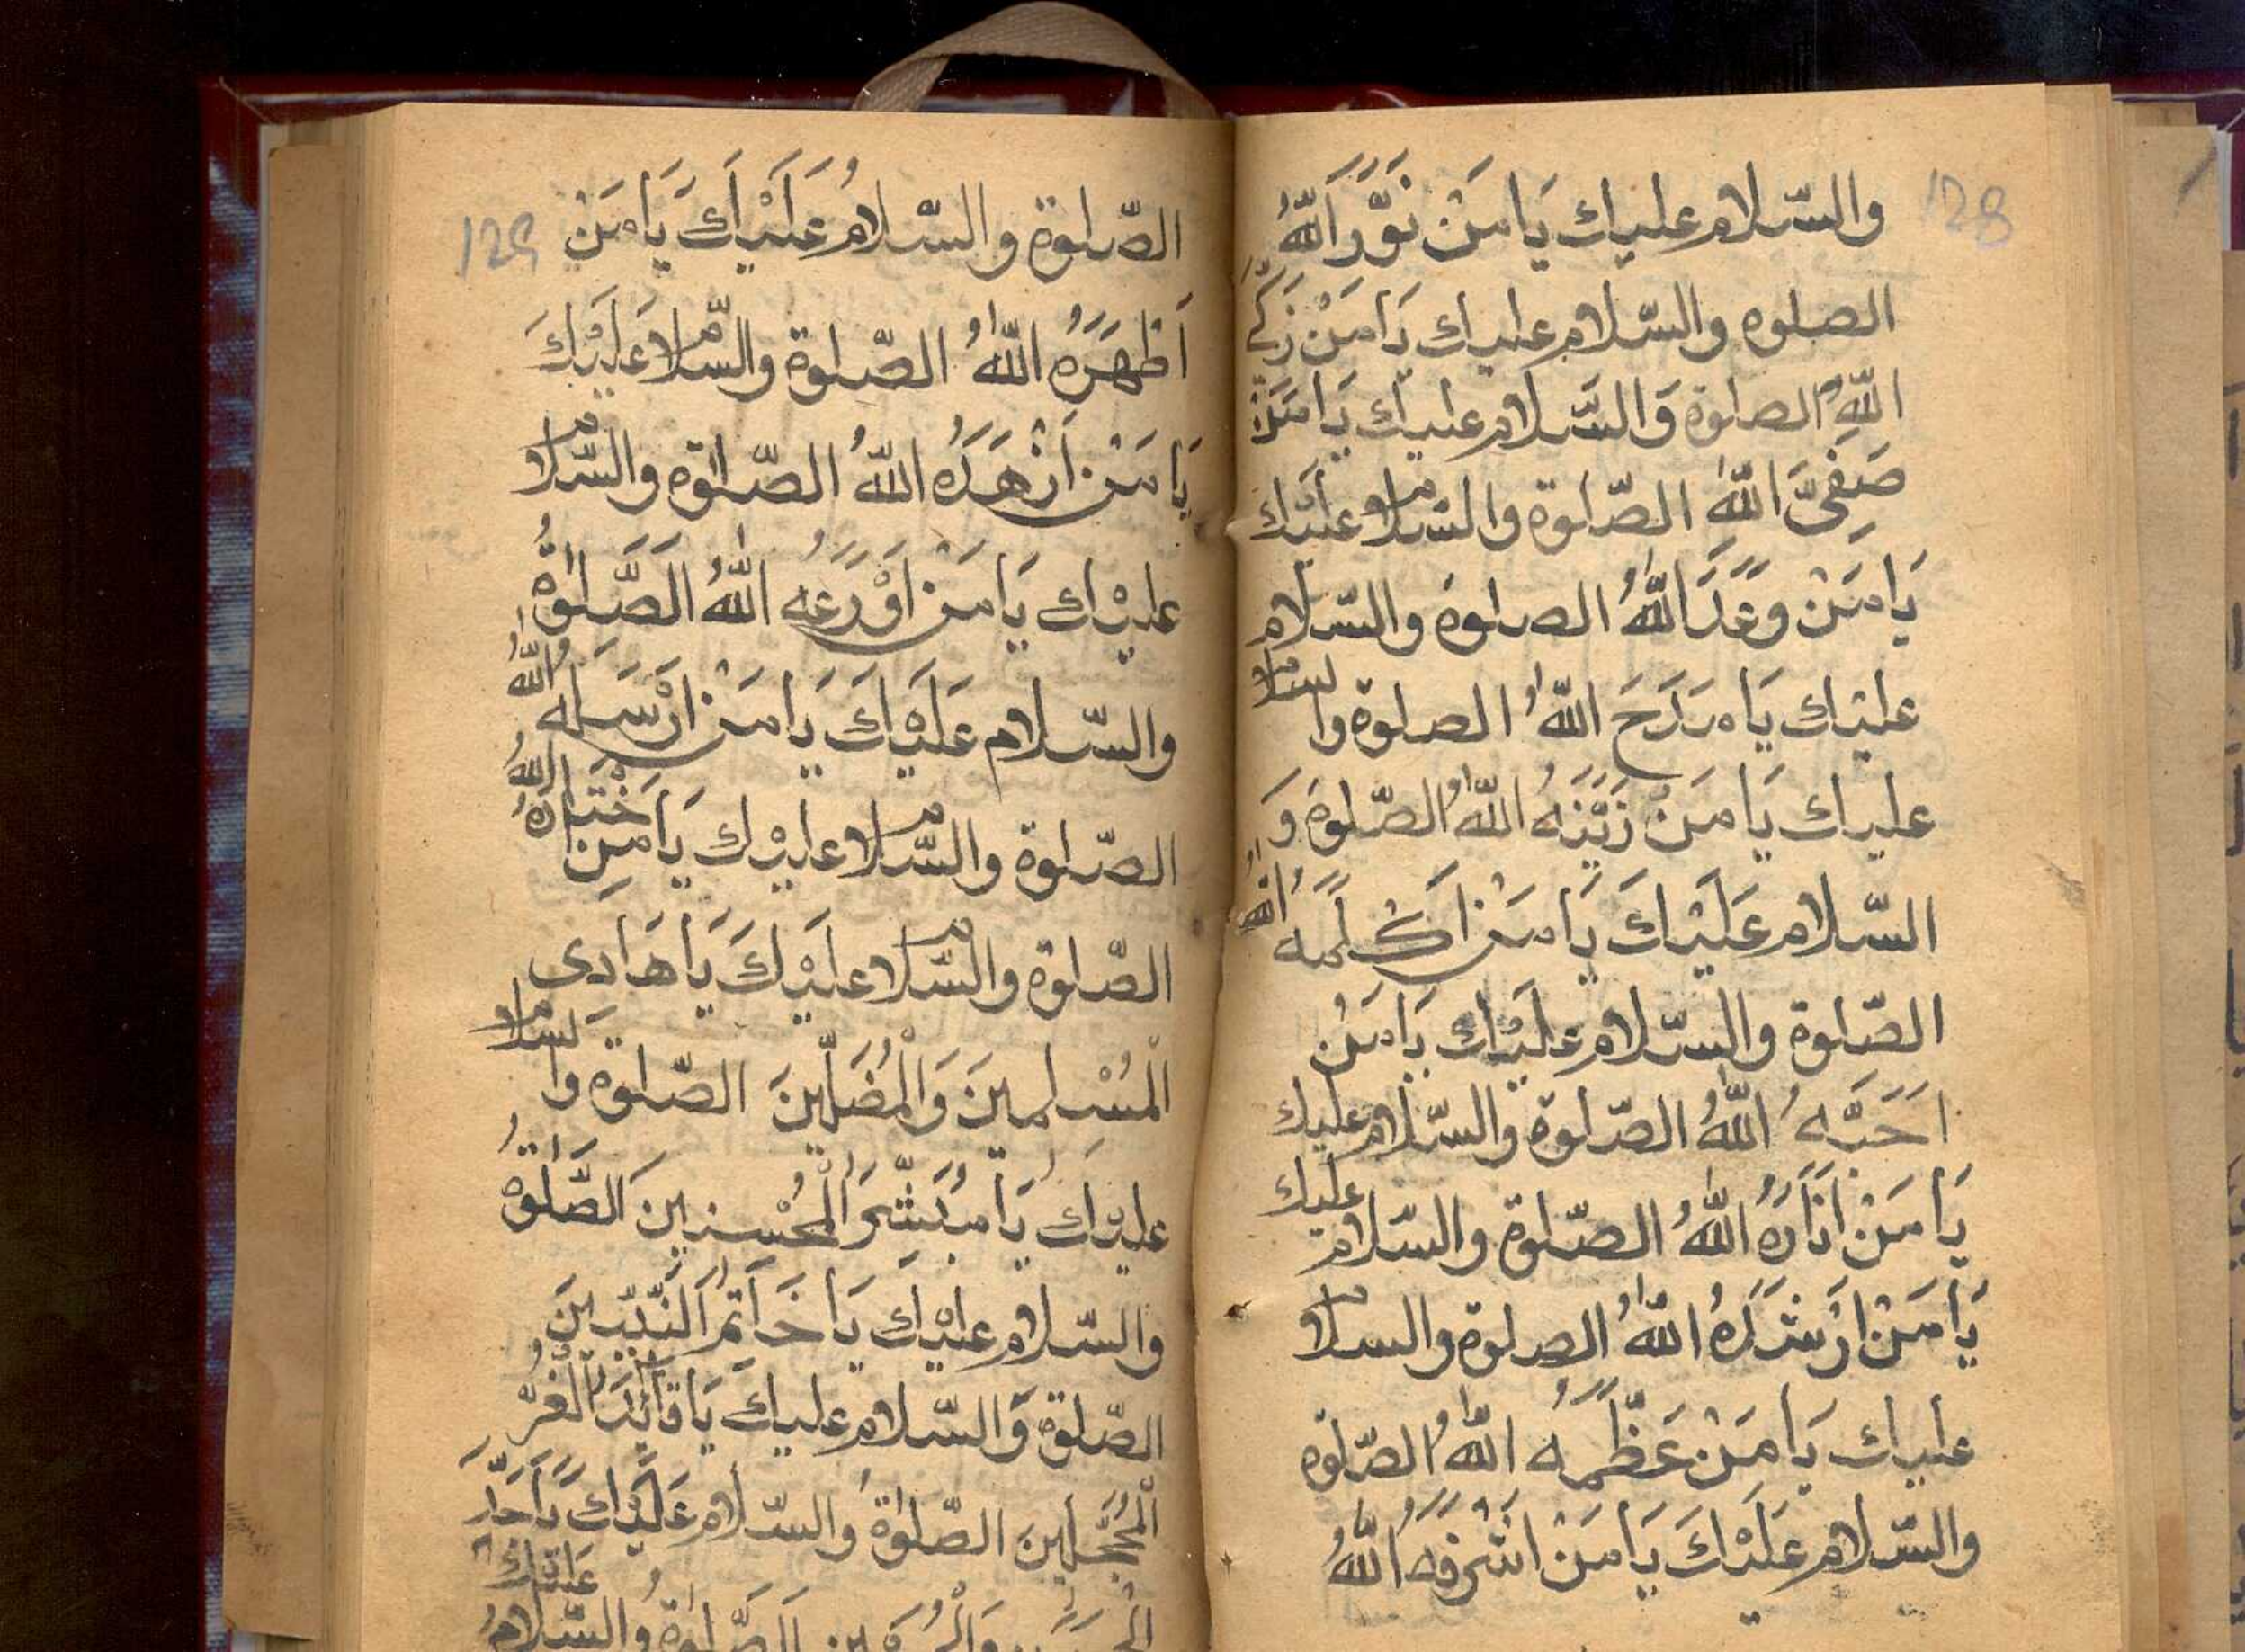 128
والسّلام عليك يَا مَنْ نَوَّرَ اَللهُ
الصلوه والسّلام عليك يَا مَنْ زَكَّے
اللهُ الصلوة وَالسَّلام عليك يَا مَنْ
صَفِىَّ اللهِ الصّلوة والسّلام عليْك
يَا مَنْ وَعَدَ اللهُ الصلوة والسّلام
عليْك يَا مَدَحَ اللهُ الصلوة والسلام
عليك يَا مَنْ زَيَّنَهُ اللهُ الصّلوة وَ
السّلام عَلَيْكَ يَا مَنْ اَكْلَمَه اللهُ
الصّلوة والسّلام عليْك يَا مَنْ
اَحَبَّهُ اللهُ الصّلوة والسّلام عليك
يَا مَنْ اَنَارَهُ اللهُ الصّلوة والسّلام عليك
يَا مَنْ اَرْشَدَهُ اللهُ الصلوة والسلام
عليك يَا مَنْ عَظَّمَهُ اللهُ الصّلوه
والسّلام عَلَيْكَ يَا مَنْ اَشْرَفَهُ اللهُ
129
الصّلوة والسّلامُ عَلَيْكَ يَا مَنْ
اَظْهَرَهُ اللهُ الصّلوة والسّلام عَلَيْكَ
يَا مَنْ اَزْهَدَهُ اللهُ الصّلوة والسّلام
عليْك يَا مَنْ اَوْرَعَهُ اللهُ اَلصَّلوةُ
والسّلام عَلَيْكَ يَا مَنْ اَرْسَلَه اللهُ
الصّلوة والسّلام عليْك يَا مَنِ اخْتَارَهُ اللهُ
الصّلوة والسّلام عليْكَ يَا هَادى
الْمُسْلِمينَ وَالْمُضَلّينَ الصّلوة والسلام
عليْك يَا مُبَشِّرَ الْمُحْسِنينَ اَلصَّلوةُ
والسّلام عليْك يَا خَاتِمَ اَلنَّبِيّينَ
الصّلوة وَالسّلام عليكَ يَا قَائِدَ الْغُرِّ
الْمُحَجَّلينَ الصّلوةُ والسّلام عَلَيْكَ يَا جَدَّ
الْحَسَنِ وَالْحُسَيْن اَلصَّلوةُ والسّلامُ عَلَيْكَ